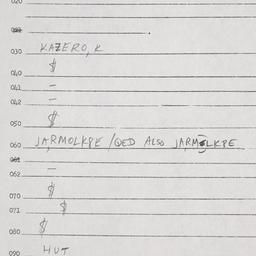 020
030 KAZERO, K
040 $
041 —
042 —
$
050
060 JARMOLKPE / QED ALSO JARMOLKPE
061
062 —
$
070
071 $
$
080
090 HUT